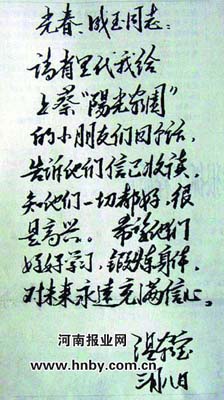 光春、成玉同志：
请有空代我给
上蔡“陽光家園”
的小朋友们回个话，
告诉他们信已收读，
知他们一切都好，很
是高兴。希望他们
好好学习，锻炼身体，
对未来永远充满信心。
温家宝
河南报业网
www.hnby.com.cn